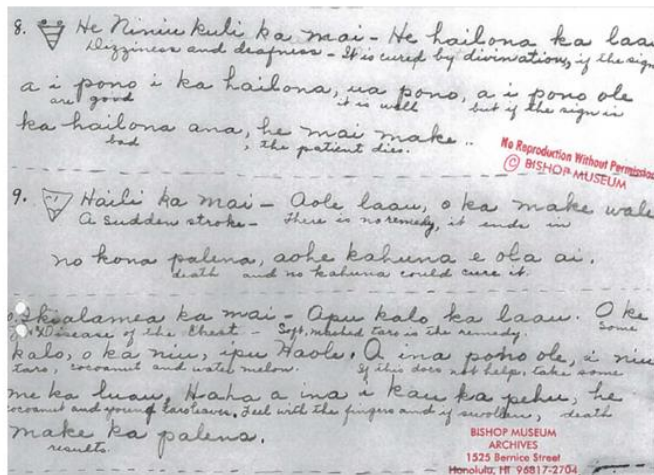 8. He Niniu kuli ka mai - He hailona ka laau
Dizziness and deafness - It is cured by divination, if the sign
a i pono i ka hailona, ua pono, a i pono ole
are good it is well but if the sign is
ka hailona ana, he mai make ..
bad , the patient dies.
No Reproduction Without Permission
© BISHOP MUSEUM
9. Haili ka mai - Aole laau, o ka make wale
A sudden stroke - There is no remedy, it ends in
no kona palena, aohe kahuna e ola ai.
death and no kahuna could cure it.
ka mai - Apu kalo ka laau. O ke
Disease of the Chest - Soft, mashed taro is the remedy. Some
kalo, o ka niu, ipu Haole. A ina pono ole, i niu
taro, cocoanut and water melon. If this does not help, take some
me ka luau, Haha a ina i kau ka pehu, he
cocoanut and young taro leaves. Feel with the fingers and if swollen, death
make ka palena.
results.
BISHOP MUSEUM
ARCHIVES
1525 Bernice Street
Honolulu, HI 96817-2704